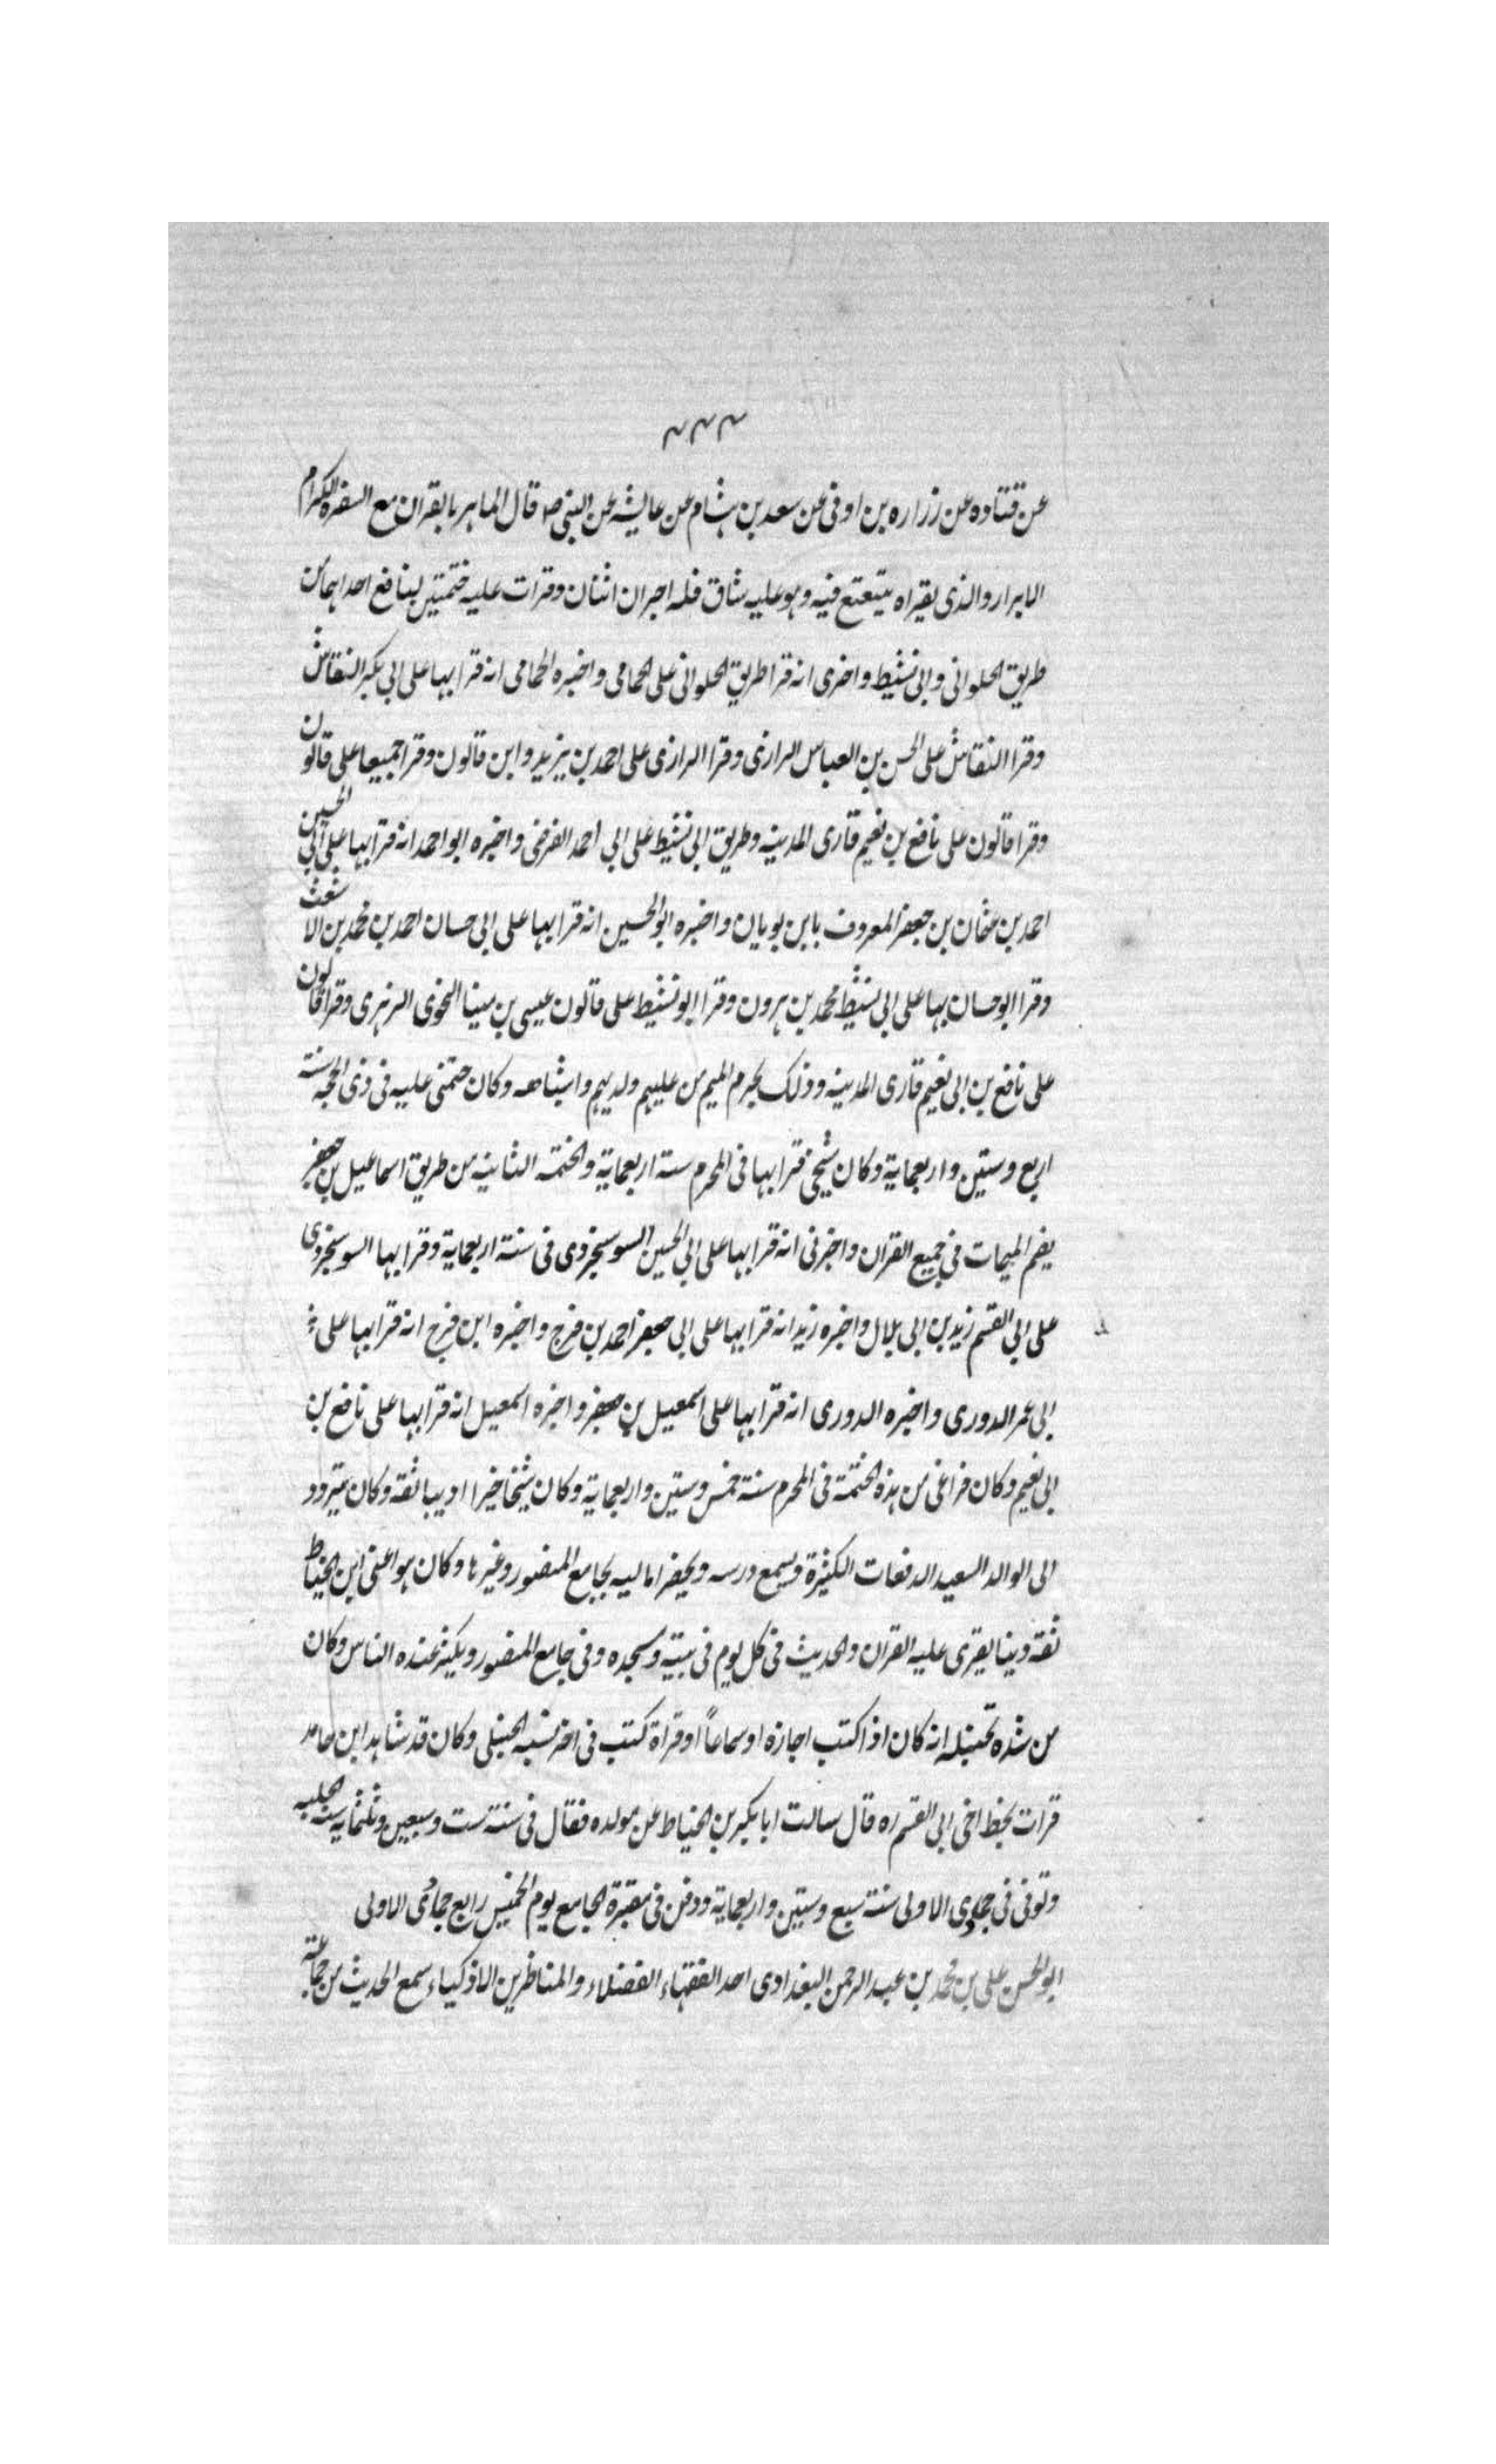 ٣٣٣
عن قتاده عن زراره بن اوفى عن سعد بن هشام عن عايشه عن النبى ص قال الماهر بالقران مع السفره الكرام
الابرار والذى يقراه يتعتع فيه وهو عليه شاق فله اجران اثنان وقرات عليه ختمتين لنافع احداهما من
طريق الحلوانى وابى نشيط واخبرى انه قرا طريق الحلوانى على الحمامى واخبره الحمامى انه قرا بها على ابى بكر النقاش
وقرا النقاش على الحسن بن العباس الرازى وقرا الرازى على احمد بن يزيد وابن قالون وقرا جميعا على قالون
وقرا قالون على نافع بن نعيم قارى المدينه وطريق ابى نشيط على ابى احمد الفرضى واخبره ابو احمد انه قرا بها على ابى الحسين
احمد بن عثمان بن جعفر المعروف بابن بويان واخبره ابو الحسين انه قرا بها على ابى حسان احمد بن محمد بن الاشعث
وقرا ابو حسان بها على ابى نشيط محمد بن هرون وقرا ابو نشيط على قالون عيسى بن مينا النحوى الزهرى وقرا قالون
على نافع بن ابى نعيم قارى المدينه وذلك بجزم الميم من عليهم ولديهم واشباهه وكان ختمتى عليه فى ذى الحجه سنة
اربع وستين واربعماية وكان شيخى قرا بها فى المحرم سنة اربعماية والختمه الثانيه من طريق اسماعيل بن جعفر
بضم الميمات فى جميع القران واخبرنى انه قرا بها على ابى الحسين السوسنجردى فى سنة اربعماية وقرا بها السوسنجردى
على ابى القسم زيد بن ابى بلال واخبره زيد انه قرا بها على ابى جعفر احمد بن فرح واخبره ابن فرح انه قرا بها على
ابى عمر الدورى واخبره الدورى انه قرا بها على اسمعيل بن جعفر واخبره اسمعيل انه قرا بها على نافع بن
ابى نعيم وكان فراغى من هذه الختمة فى المحرم سنة خمس وستين واربعماية وكان شيخا خيرا اديبا ثقة وكان يتردد
الى الوالد السعيد الدفعات الكثيرة ويسمع درسه ويحضر اماليه بجامع المنصور وغيرها وكان هو اعنى ابن الخياط
ثقة دينا يقرى عليه القران والحديث فى كل يوم فى بيته ومسجده وفى جامع المنصور ويكثر عنده الناس وكان
من شده تحنبله انه كان اذا كتب اجازه او سماعاً او قراة كتب فى اخر نسبه الحنبلى وكان قد شاهد ابن حامد
قرات بخط اخى ابى القسم ره قال سالت ابا بكر بن الخياط عن مولده فقال فى سنة ست وسبعين وثلثماية
وتوفى فى جمادى الاولى سنة سبع وستين واربعماية ودفن فى مقبرة الجامع يوم الخميس رابع جمادى الاولى
ابو الحسن على بن محمد بن عبد الرحمن البغدادى احد الفقهاء الفضلاء والمناظرين الاذكياء سمع الحديث من جماعة